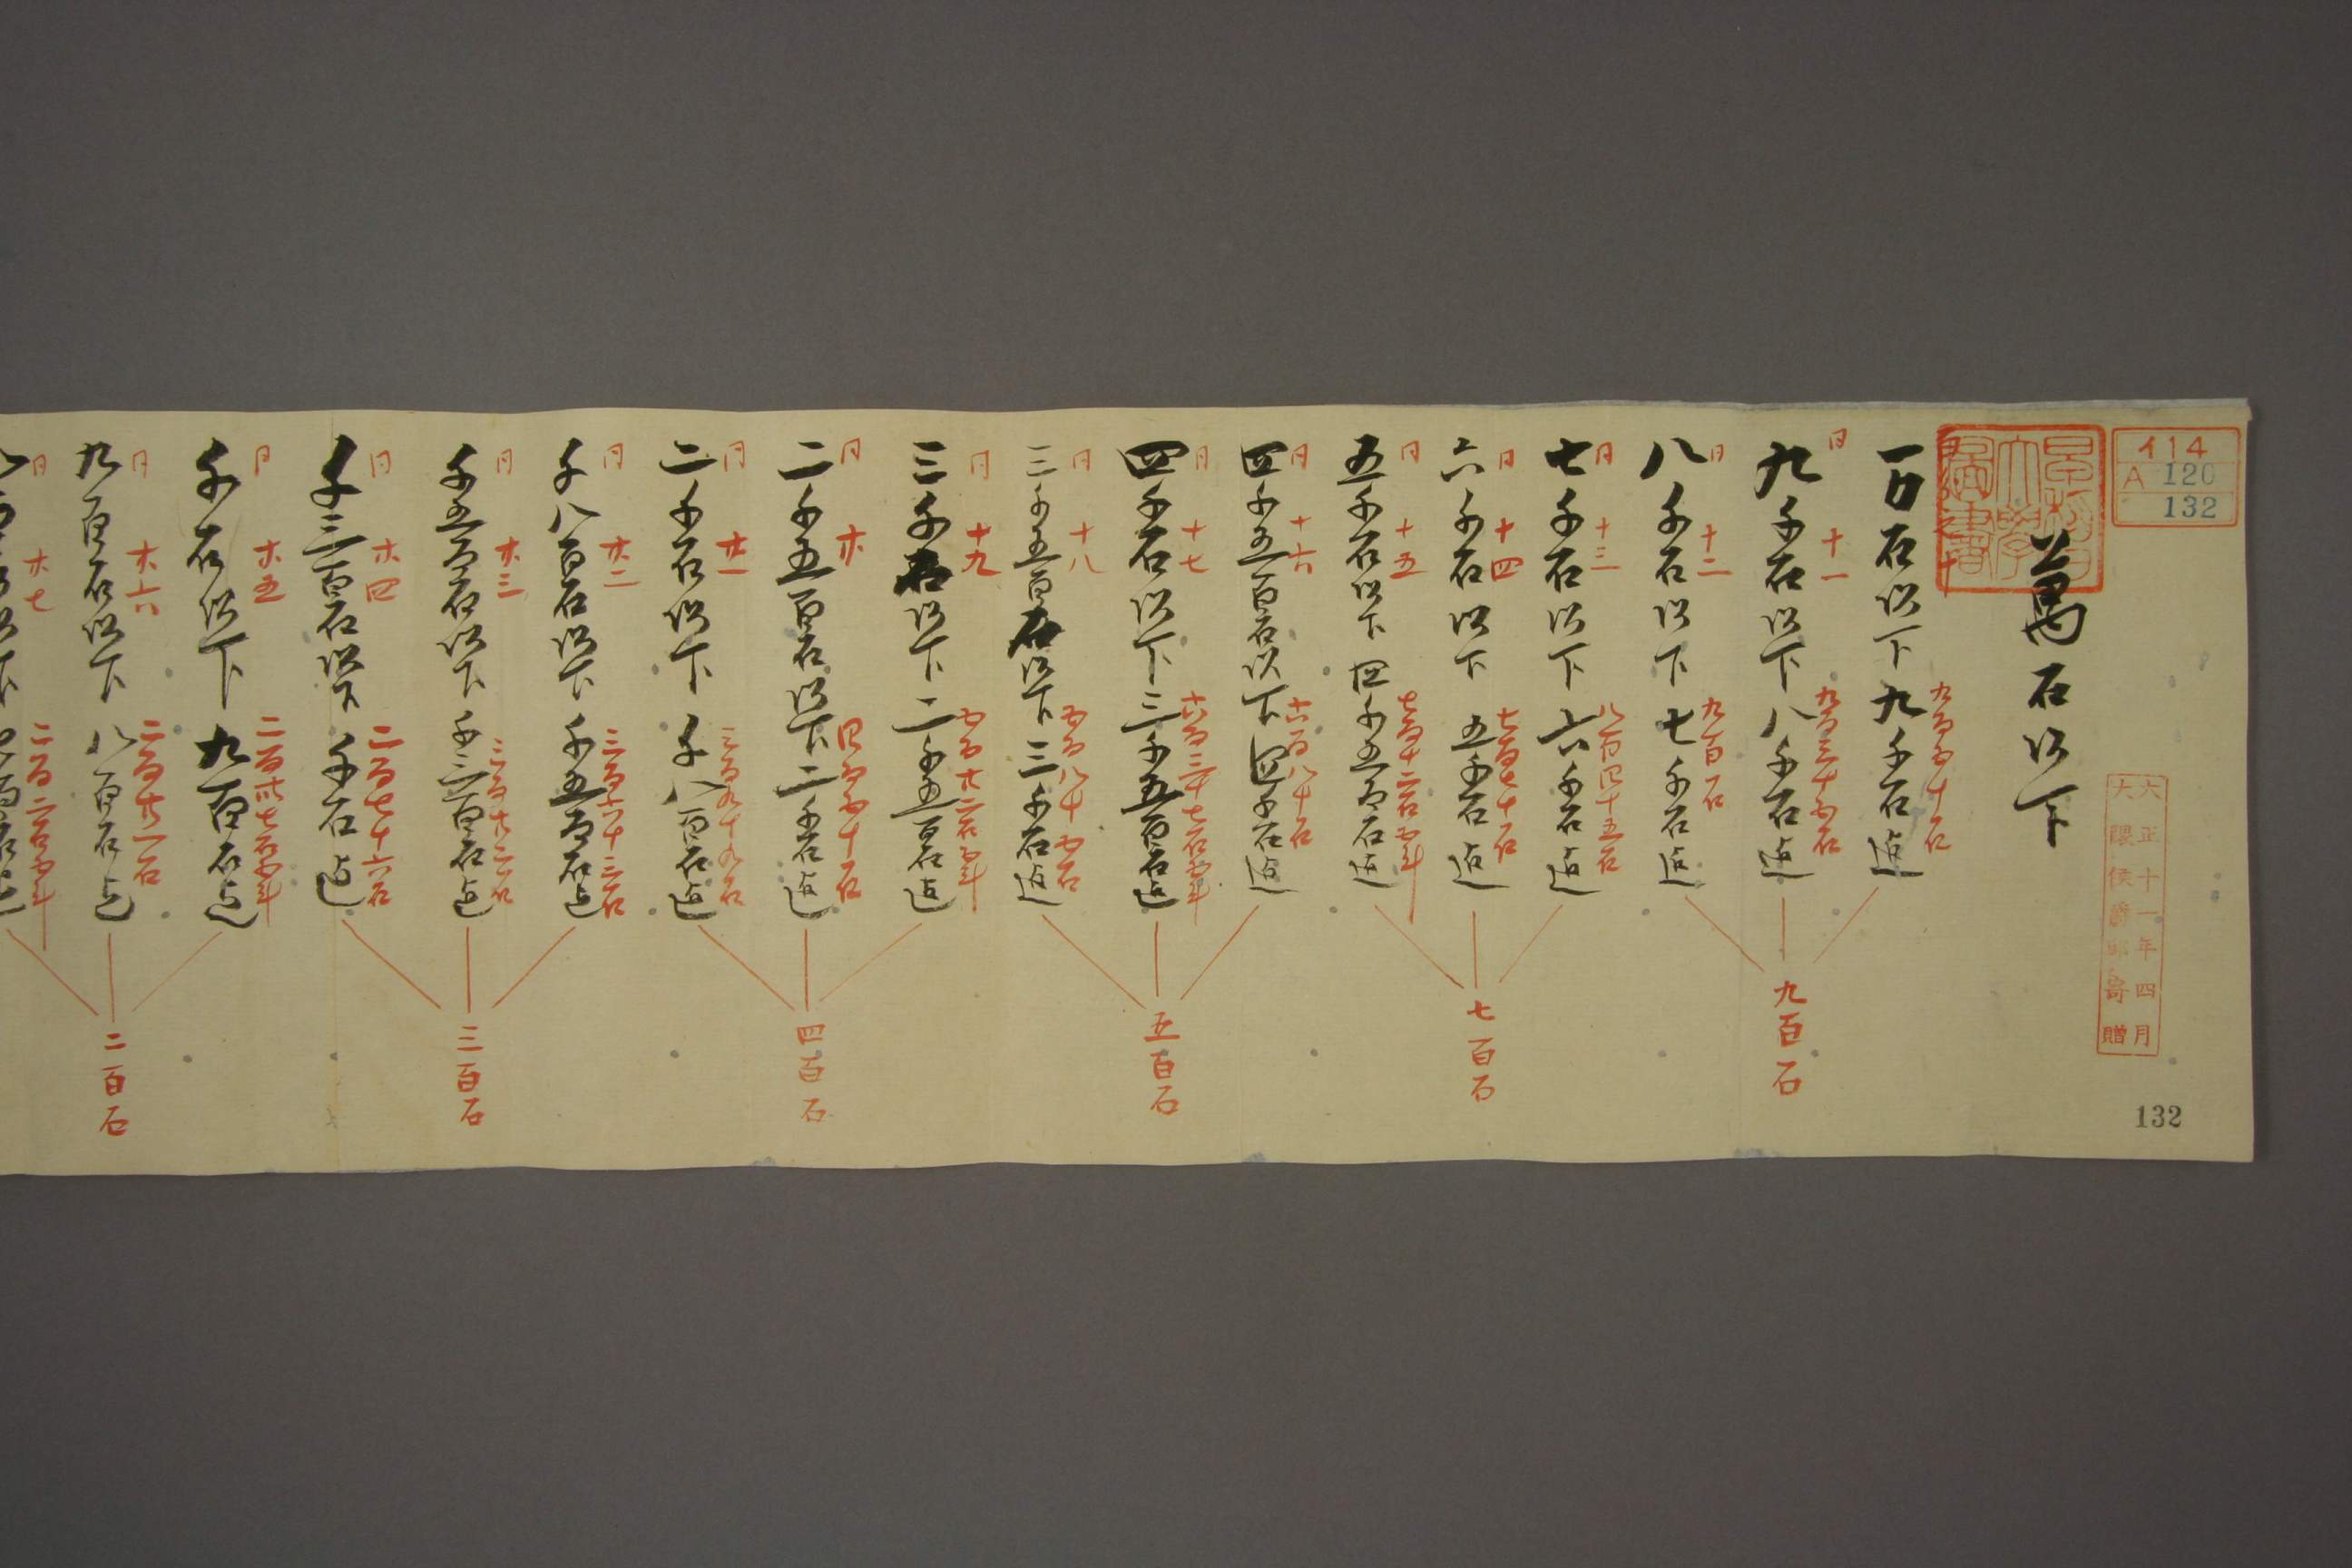 イ14
A 120
132
大正十一年四月
大隈侯爵家寄贈
132
萬石以下
一万石以下九千石迄
九百五十石
同 十一
九千石以下八千石迄
九百三十五石
同 十二
八千石以下七千石迄
九百石
同 十三
七千石以下六千石迄
八百四十五石
同 十四
六千石以下五千石迄
七百七十石
同 十五
五千石以下四千五百石迄
七百十二石五斗
同 十六
四千五百石以下四千石迄
六百八十石
同 十七
四千石以下三千五百石迄
六百三十七石五斗
同 十八
三千五百石以下三千石迄
五百八十五石
同 十九
三千石以下二千五百石迄
五百廿二石五斗
同 廿
二千五百石以下二千石迄
四百五十石
同 廿一
二千石以下千八百石迄
三百九十九石
同 廿二
千八百石以下千五百石迄
三百六十三石
同 廿三
千五百石以下千三百石迄
同 廿四
千三百石以下千石迄
二百七十六石
同 廿五
千石以下九百石迄
二百卅七石五斗
同 廿六
九百石以下八百石迄
二百廿一石
同 廿七
二百二石五斗
九百石
七百石
五百石
四百石
三百石
二百石